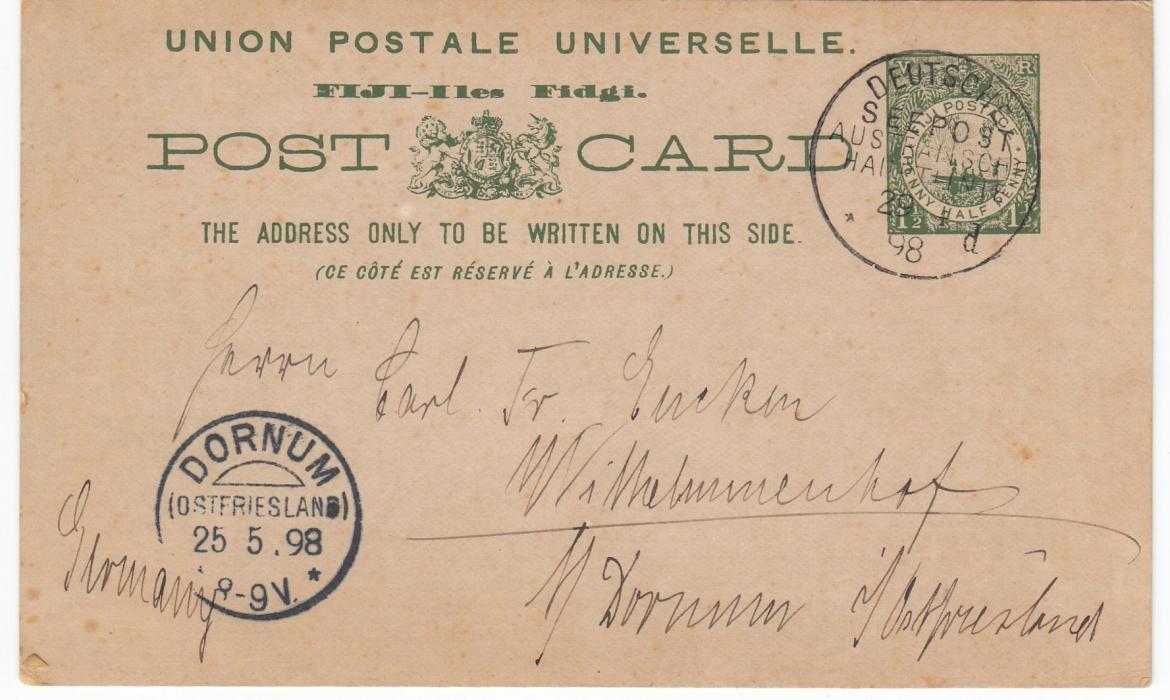 UNION POSTALE UNIVERSELLE.
FIJI–Iles Fidgi.
POST CARD
THE ADDRESS ONLY TO BE WRITTEN ON THIS SIDE.
(CE CÔTÉ EST RÉSERVÉ À L'ADRESSE.)
V R
FIJI POSTAGE
PENNY HALF PENNY
1½ 1½
DEUTSCHE
SEEPOST
29 4
98 d
Herrn Carl. Fr. Eucken
Wilhelminenhof
b/ Dornum i/Ostfriesland
Germany
DORNUM
(OSTFRIESLAND)
25 5.98
* 8-9V. *